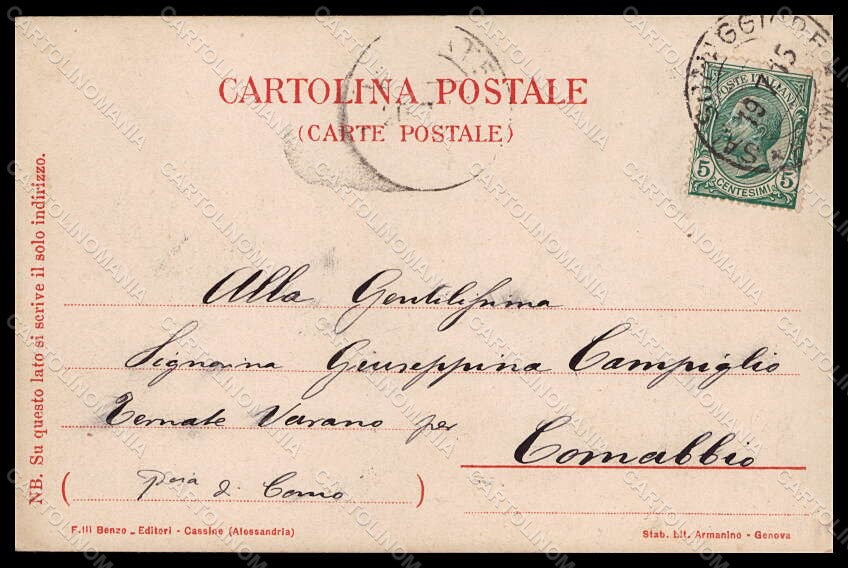 CARTOLINA POSTALE
(CARTE POSTALE)
POSTE ITALIANE
5 CENTESIMI 5
19
NB. Su questo lato si scrive il solo indirizzo.
Alla Gentilissima
Signorina Giuseppina Campiglio
Ternate Varano per
Comabbio
( di Como )
F.lli Benzo - Editori - Cassine (Alessandria)
Stab. Lit. Armanino - Genova
CARTOLINOMANIA